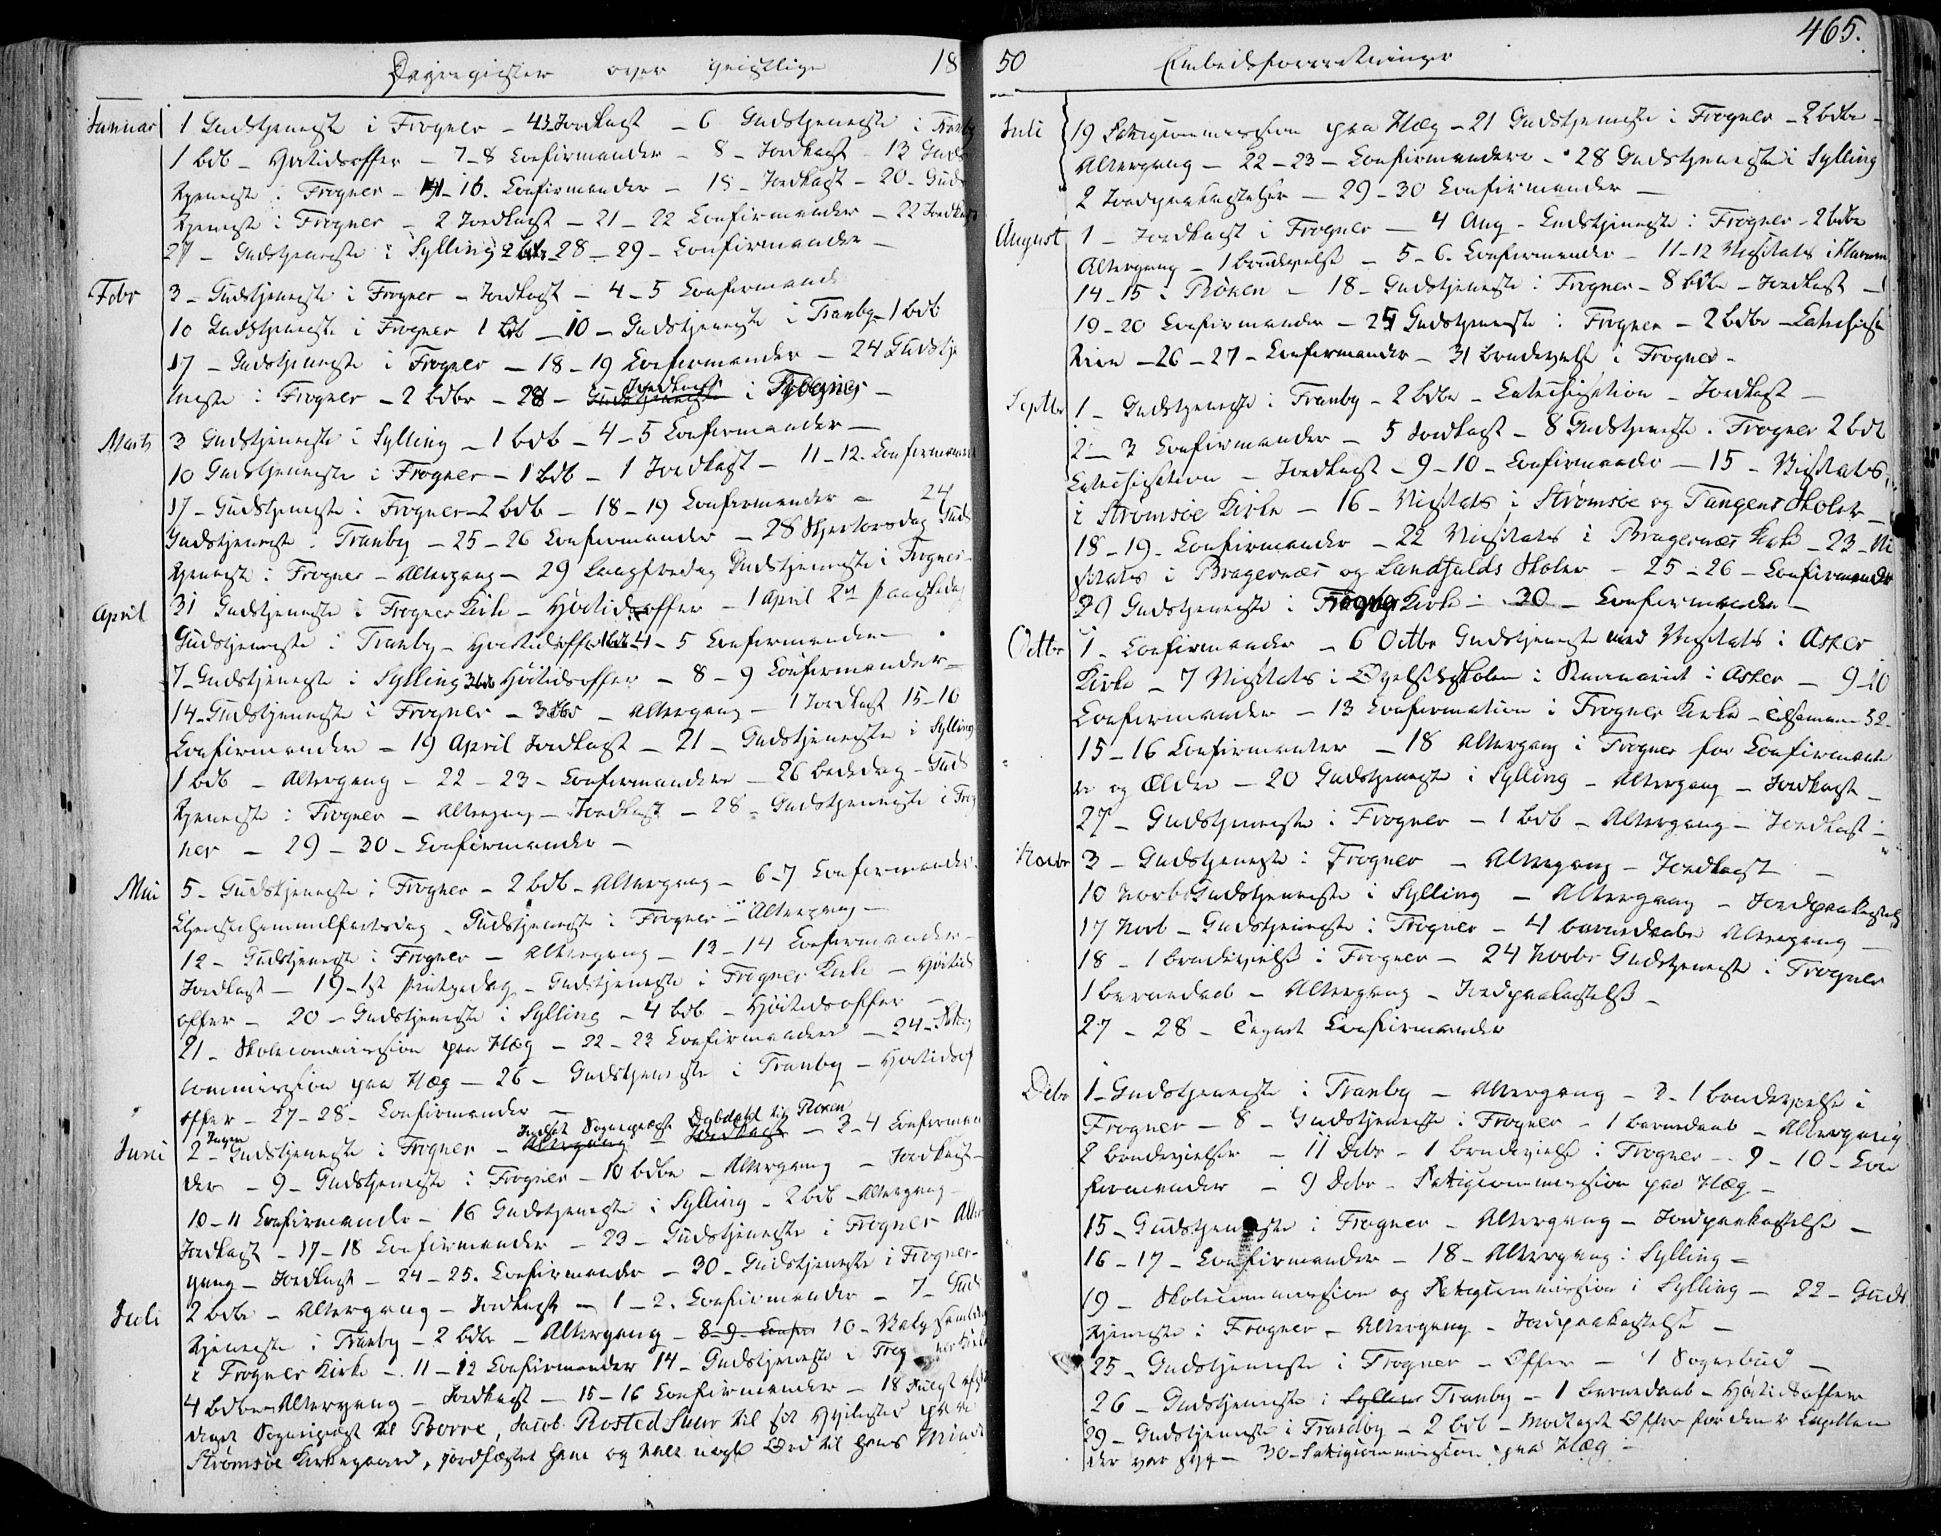 Dagregister over Geistlige 18
Januar 1 Gudstjeneste i Frogner - 4 Jordkast - 6 Gudstjeneste i Tranby
1 bdb - Høitidsoffer - 7-8 Confirmander - 8 - Jordkast - 13 Guds
tjeneste i Frogner - 16 - Confirmander - 18 - Jordkast - 20 - Guds
tjeneste i Frogner - 2 Jordkast - 21 - 22 Confirmander - 22 Jordkast
27 - Gudstjeneste i Sylling 28 - 29 - Confirmander -
Febr 3 - Gudstjeneste i Frogner - Jordkast - 4-5 Confirmand
10 Gudstjeneste i Frogner 1 bdb - 10 - Gudstjeneste i Tranby - 1 bdb
17 - Gudstjeneste i Frogner - 18 - 19 Confirmander - 24 Gudstje
neste i Frogner - 2 bdbr - 28 - Jordkast i Frogner -
Marts 3 Gudstjeneste i Sylling - 1 bdb - 4-5 Confirmander -
10 Gudstjeneste i Frogner - 1 bdb - 1 Jordkast - 11-12. Confirmand
17 - Gudstjeneste i Frogner - 2 bdb - 18 - 19 Confirmander - 24
Gudstjeneste i Tranby - 25 - 26 Confirmander - 28 Skjertorsdag Guds
tjeneste i Frogner - Altergang - 29 Langfredag Gudstjeneste i Frogner
April 31 Gudstjeneste i Frogner Kirke - Høitidsoffer - 1 April 2den Paaskedag
Gudstjeneste i Tranby - Høitidsoffer 4 - 5 Confirmander
7 - Gudstjeneste i Sylling Høitidsoffer - 8 - 9 Confirmander -
14 - Gudstjeneste i Frogner - 3 - Altergang - 1 Jordkast 15-16
Confirmander - 19 April Jordkast - 21 - Gudstjeneste i Sylling
1 bdb - Altergang - 22 - 23 - Confirmander - 26 Bededag - Guds
tjeneste i Frogner - Altergang - Jordkast - 28 - Gudstjeneste i Frog
ner - 29 - 30 - Confirmander -
Mai 5 - Gudstjeneste i Frogner - 2 bdb - Altergang - 6-7 Confirmander
Christi Himmelfartsdag - Gudstjeneste i Frogner - Altergang -
12 - Gudstjeneste i Frogner - Altergang - 13 - 14 Confirmander -
Jordkast - 19 - 1st Pintsedag - Gudstjeneste i Frogner Kirke - Høitids
offer - 20 - Gudstjeneste i Sylling - 4 bdb - Høitidsoffer -
21 - Skolecommission paa Hæg - 22 - 23 Confirmander - 24 - Fattig
commission paa Hæg - 26 - Gudstjeneste i Tranby - Høitids
offer - 27 - 28 - Confirmander -
Juni 2 - Ingen Gudstjeneste i Frogner - Indsat Sogneprest Dybdahl til Røken - 3 - 4 Confirman
der - 9 - Gudstjeneste i Frogner - 10 bdbr - Altergang - Jordkast -
10 - 11 Confirmander - 16 Gudstjeneste i Sylling - 2 bdb - Altergang -
Jordkast - 17 - 18 Confirmander - 23 - Gudstjeneste i Frogner Alter
gang - Jordkast - 24 - 25. Confirmander - 30 - Gudstjeneste i Frogner -
Juli 2 bdbr - Altergang - Jordkast - 1 - 2. Confirmander - 7 - Guds
tjeneste i Tranby - 2 bdbr - Altergang - 8-9 - 10 - Valgsamling
i Frogner Kirke - 11 - 12 Confirmander 14 - Gudstjeneste i Frogner Kirke
4 bdbr - Altergang - Jordkast - 15 - 16 Confirmander - 18 Fulgt
Sogneprest til Borre, Jacob Rosted Suur til sit Hvilested paa
Strømsøe Kirkegaard, jordfæstet ham og talt nogle Ord til hans Minde
50 Embedsforretninger 465.
Juli 19 Fattigcommission paa Hæg - 21 Gudstjeneste i Frogner - 2 bdbr -
Altergang - 22 - 23 - Confirmander - 28 Gudstjeneste i Sylling
2 Jordpaakastelser - 29 - 30 Confirmander -
August 1 - Jordkast i Frogner - 4 Aug - Gudstjeneste i Frogner - 2 bdbr
Altergang - 1 Brudevielse - 5 - 6. Confirmander - 11-12 Visitats i Hurum
14 - 15 i Røken - 18 - Gudstjeneste i Frogner - 8 bdbr - Jordkast -
19 - 20 Confirmander - 25 Gudstjeneste i Frogner - 2 bdbr - Catechisa
tion - 26 - 27 - Confirmander - 31 Brudevielse i Frogner -
Septbr 1 - Gudstjeneste i Tranby - 2 bdbr - Catechisation - Jordkast -
2 - 3 Confirmander - 5 Jordkast - 8 Gudstjeneste i Frogner 2 bdb
Catechisation - Jordkast - 9 - 10 - Confirmander - 15 - Visitats
i Strømsøe Kirke - 16 - Visitats i Strømsøe og Tangens Skoler -
18 - 19 - Confirmander - 22 Visitats i Bragernæs Kirke - 23 - Vi
sitats i Bragernæs og Landfalds Skoler - 25 - 26 - Confirmander
29 Gudstjeneste i Frogner Kirke - 30 - Confirmander -
Octbr 1 - Confirmander - 6 Octbr Gudstjeneste med Visitats i Asker
Kirke - 7 Visitats i Øvelsesskolen i i Asker - 9-10
Confirmander - 13 Confirmation i Frogner Kirke - Tilsammen 32 -
15 - 16 Confirmanter - 18 Altergang i Frogner for Confirmante
r og Ældre - 20 Gudstjeneste i Sylling - Altergang - Jordkast -
27 - Gudstjeneste i Frogner - 1 bdb - Altergang - Jordkast -
Novbr 3 - Gudstjeneste i Frogner - Altergang - Jordkast -
10 Novbr Gudstjeneste i Sylling - Altergang - Jordpaakastelse
17 Novb - Gudstjeneste i Frogner - 4 Barnedaabe Altergang -
18 - 1 Brudevielse i Frogner - 24 Novbr Gudstjeneste i Frogner
1 Barnedaab - Altergang - Jordpaakastelse -
27 - 28 - Confirmander
Debr 1 - Gudstjeneste i Tranby - Altergang - 3 - 1 Brudevielse i
Frogner - 8 - Gudstjeneste i Frogner - 1 Barnedaab - Altergang
2 Brudevielser - 11 Debr - 1 Brudevielse i Frogner - 9 - 10 - Con
firmander - 9 Debr - Fattigcommission paa Hæg -
15 - Gudstjeneste i Frogner - Altergang - Jordpaakastelse -
16 - 17 - Confirmander - 18 - Altergang i Sylling -
19 - Skolecommission og Fattigcommission i Sylling - 22 - Guds
tjeneste i Frogner - Altergang - Jordpaakastelse -
25 - Gudstjeneste i Frogner - Offer - 1 Sognebud -
26 - Gudstjeneste i Tranby - 1 Barnedaab - Høitidsoffer
29 - Gudstjeneste i Tranby - 2 bdb - Modtaget Offer for den Capellan
der var syg - 30 - Fattigcommission paa Hæg -